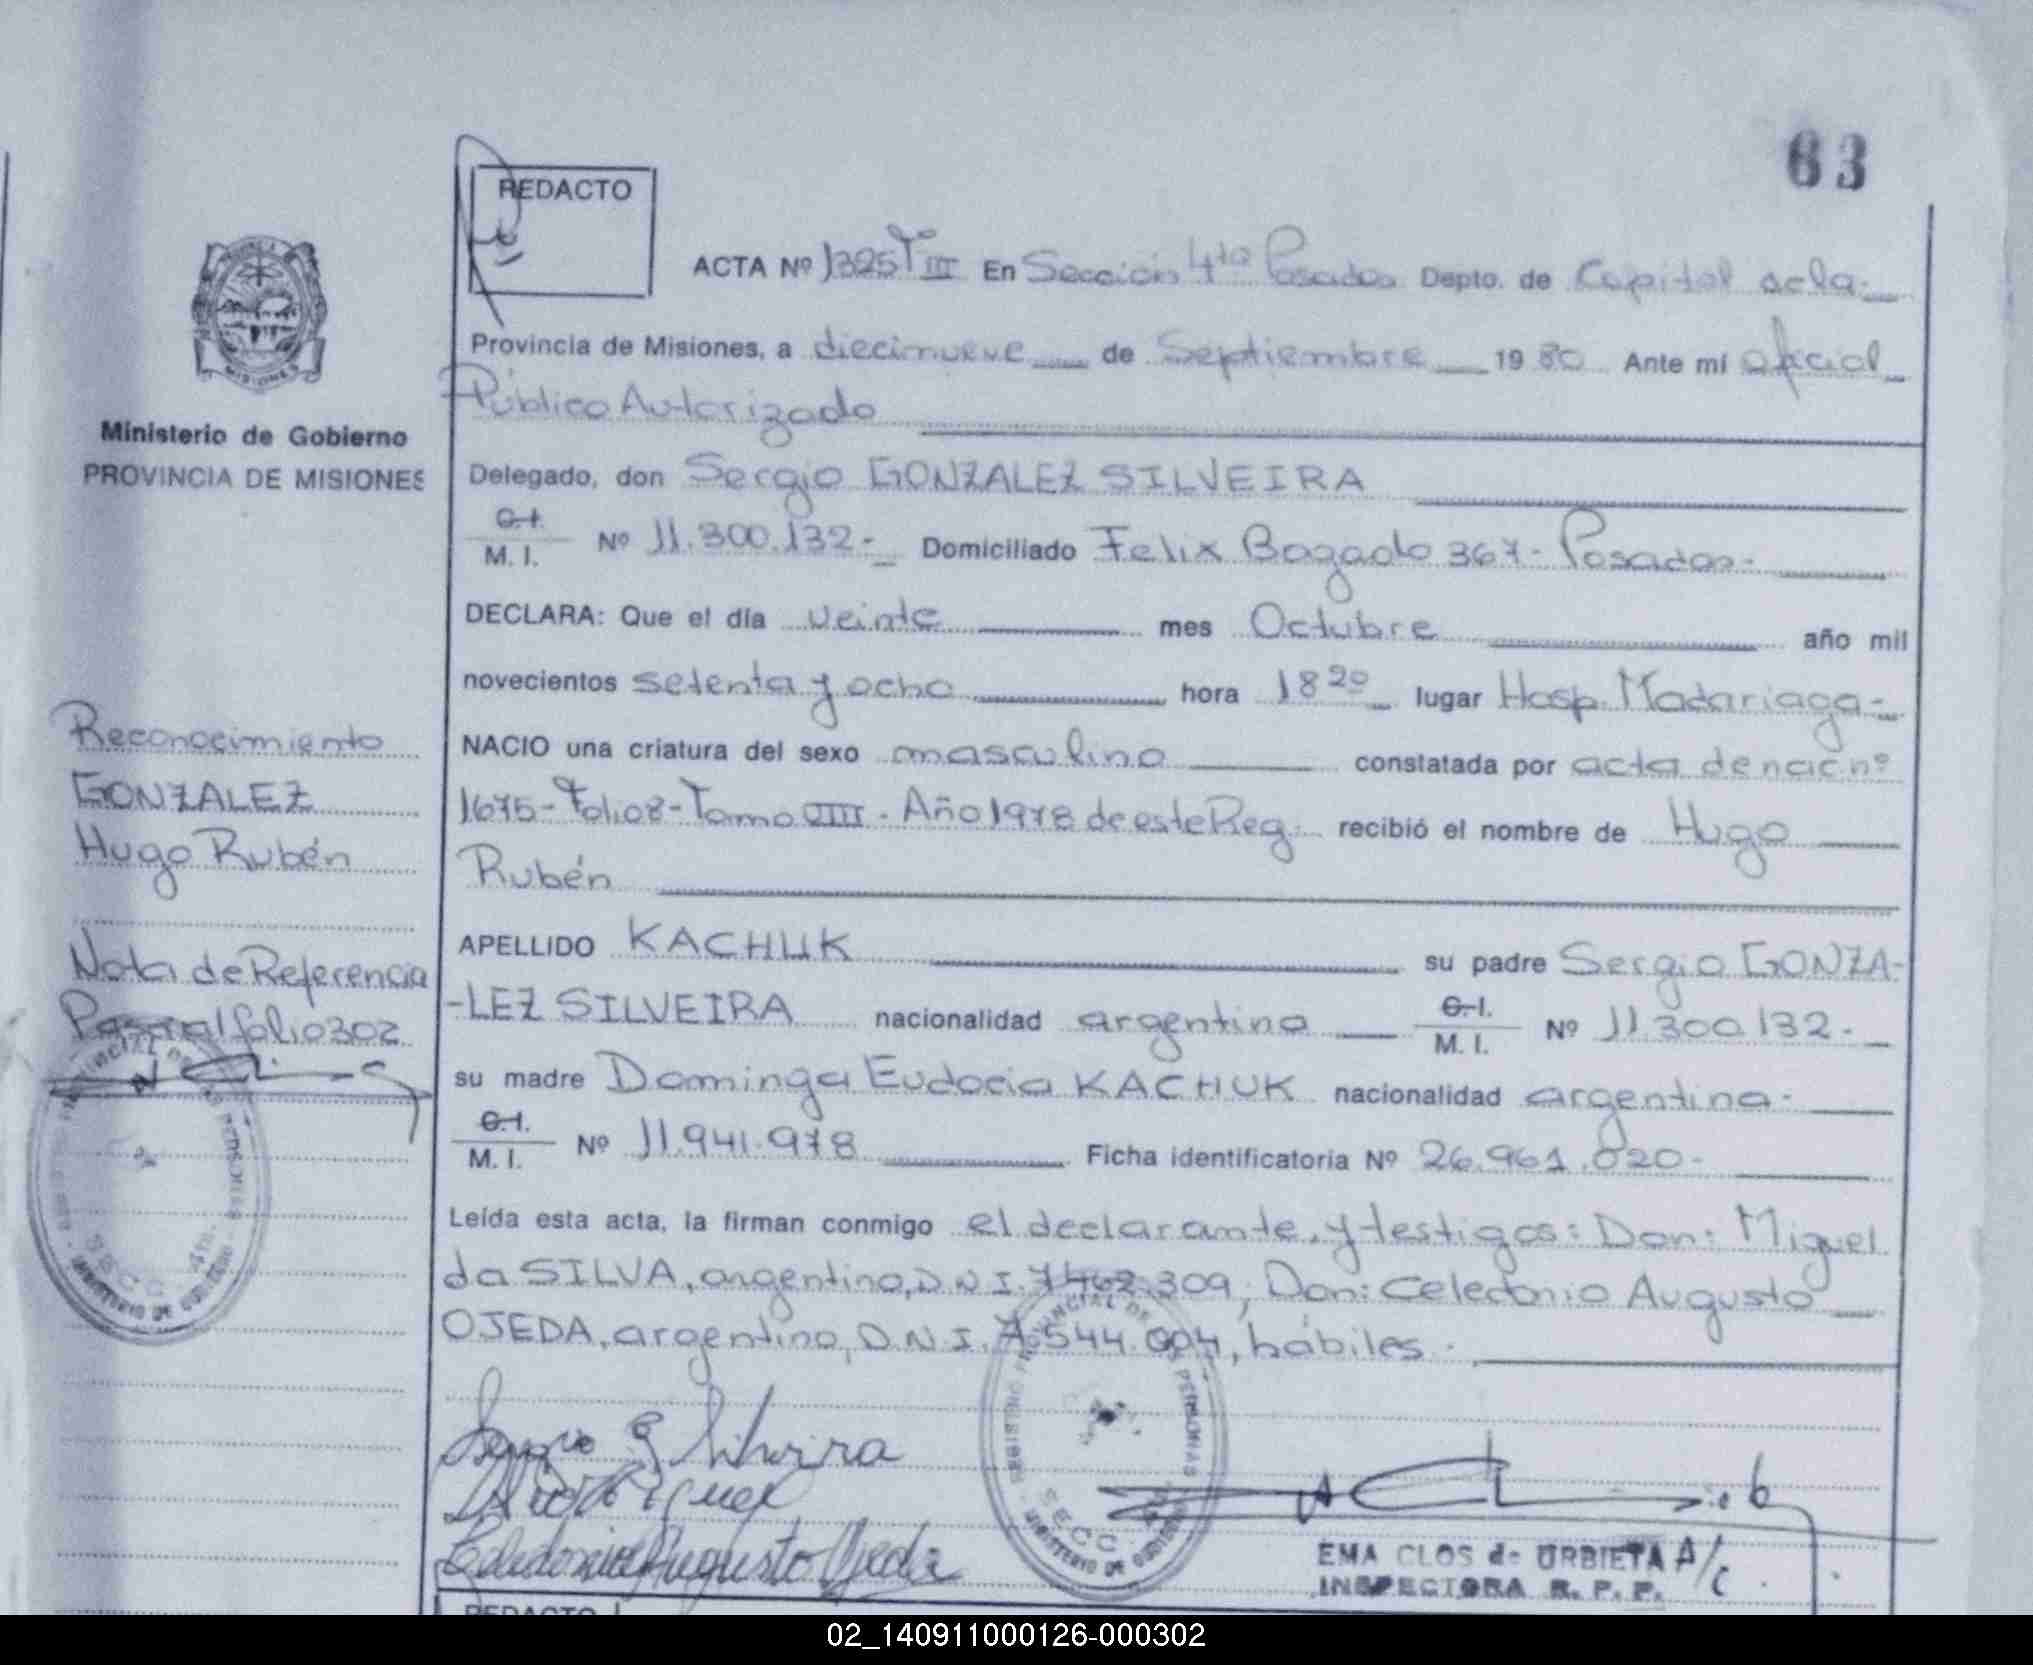 63
REDACTO
ACTA Nº 1325 T III En Sección 4ta Posadas Depto. de Capital de la
Provincia de Misiones, a diecinueve de Septiembre 1980 Ante mí oficial
Público Autorizado
Delegado, don Sergio GONZALEZ SILVEIRA
C.I.
M. I. Nº 11.300.132.- Domiciliado Felix Bogado 367- Posadas-
DECLARA: Que el día veinte mes Octubre año mil
novecientos setenta y ocho hora 18 20 lugar Hosp. Madariaga-
NACIO una criatura del sexo masculino constatada por acta de nac nº
1675- Folio 8- Tomo VIII. Año 1978 de este Reg. recibió el nombre de Hugo
Rubén
APELLIDO KACHUK su padre Sergio GONZA-
-LEZ SILVEIRA nacionalidad argentino C.I.
M. I. Nº 11.300.132.-
su madre Dominga Eudocia KACHUK nacionalidad argentina-
C.I.
M. I. Nº 11.941.978 Ficha identificatoria Nº 26.961.020-
Leída esta acta, la firman conmigo el declarante, y testigos: Don: Miguel
da SILVA, argentino, D.N.I. 7.462.309, Don: Celedonio Augusto
OJEDA, argentino, D.N.I. 7.544.004, hábiles.
Sergio G Silveira
Celedonio Augusto Ojeda
EMA CLOS de URBIETA A/C
INSPECTORA R. P. P.
MISIONES
Ministerio de Gobierno
PROVINCIA DE MISIONES
Reconocimiento
GONZALEZ
Hugo Rubén
Nota de Referencia
Pasa al folio 302
REGISTRO PROVINCIAL DE LAS PERSONAS
SECC. 4ta.
MINISTERIO DE GOBIERNO
REDACTO
02_140911000126-000302